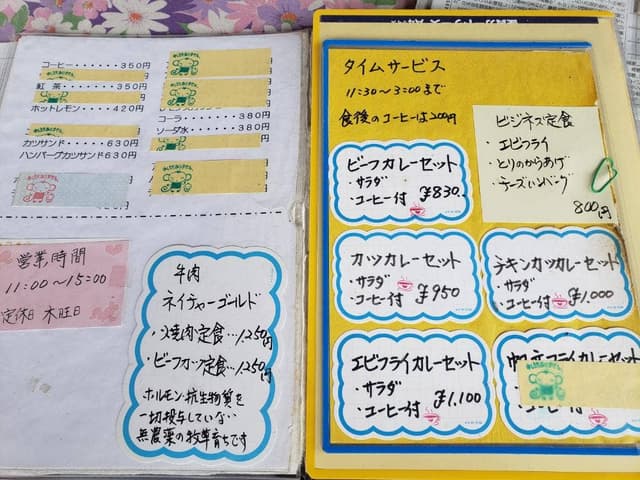 コーヒー・・・・・・・350円
紅 茶・・・・・・・350円
ホットレモン・・・・420円
カツサンド・・・・・630円
ハンバーグカツサンド・630円
コーラ・・・・・・・380
ソーダ水・・・・・・380
営業時間
11:00〜15:00
定休日 木旺日
牛肉
ネイチャーゴールド
・焼肉定食…1,250円
・ビーフカツ定食…1,250円
ホルモン・抗生物質を
一切投与していない
無農薬の牧草育ちです
タイムサービス
11:30〜3:00まで
食後のコーヒーは200円
ビジネス定食
・エビフライ
・とりのからあげ
・チーズハンバーグ
800円
ビーフカレーセット
・サラダ
・コーヒー付 ¥830
カツカレーセット
・サラダ
・コーヒー付 ¥950
チキンカツカレーセット
・サラダ
・コーヒー付 ¥1,000
エビフライカレーセット
・サラダ
・コーヒー付 ¥1,100
フライカレーセット
・サラダ
・コーヒー